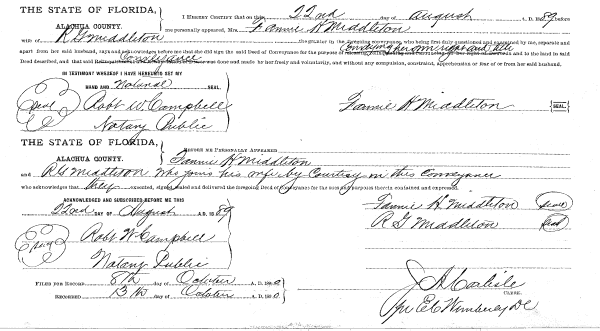 THE STATE OF FLORIDA, I HEREBY CERTIFY that on this 22nd day of August A. D. 1889 before
ALACHUA COUNTY. me personally appeared, Mrs. Fannie H Middleton
wife of R G Middleton the grantor in the foregoing conveyance, who being first duly questioned and examined by me, separate and
Conveying her own right and title
apart from her said husband, says and acknowledges before me that did she sign the said Deed of Conveyance for the purpose of
Conveyance
Deed described, and that said was made and done by her freely and voluntarily, and without any compulsion, constraint, apprehension or fear of or from her said husband.
IN TESTIMONY WHEREOF I HAVE HEREUNTO SET MY
HAND AND Notarial SEAL.
Seal Robt W. Campbell Fannie H Middleton SEAL.
Notary Public
THE STATE OF FLORIDA, BEFORE ME PERSONALLY APPEARED
ALACHUA COUNTY. Fannie H Middleton
and R G Middleton who joins his wife by Courtesy in this Conveyance
who acknowledges that they executed, signed, sealed and delivered the foregoing Deed of Conveyance for the uses and purposes therein contained and expressed.
ACKNOWLEDGED AND SUBSCRIBED BEFORE ME THIS
22nd DAY OF August A. D. 1889 Fannie H. Middleton Seal
R G Middleton Seal
Seal Robt W Campbell
Notary Public
FILED FOR RECORD 8th day of October A. D. 1890
RECORDED 13th day of October A. D. 1890
J A Carlisle
CLERK.
Per E C Wimberly DC